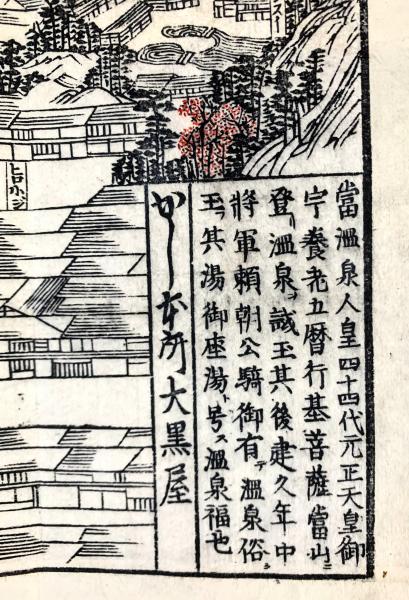 當温泉人皇四十四代元正天皇御
宇養老五暦行基菩薩當山ニ
登リ温泉ヲ誡玉其後建久年中
將軍頼朝公騎御有テ温泉俗シ
玉ヲ其湯御座湯ト号ス温泉福也
かし本所大黒屋
ヒロコジ